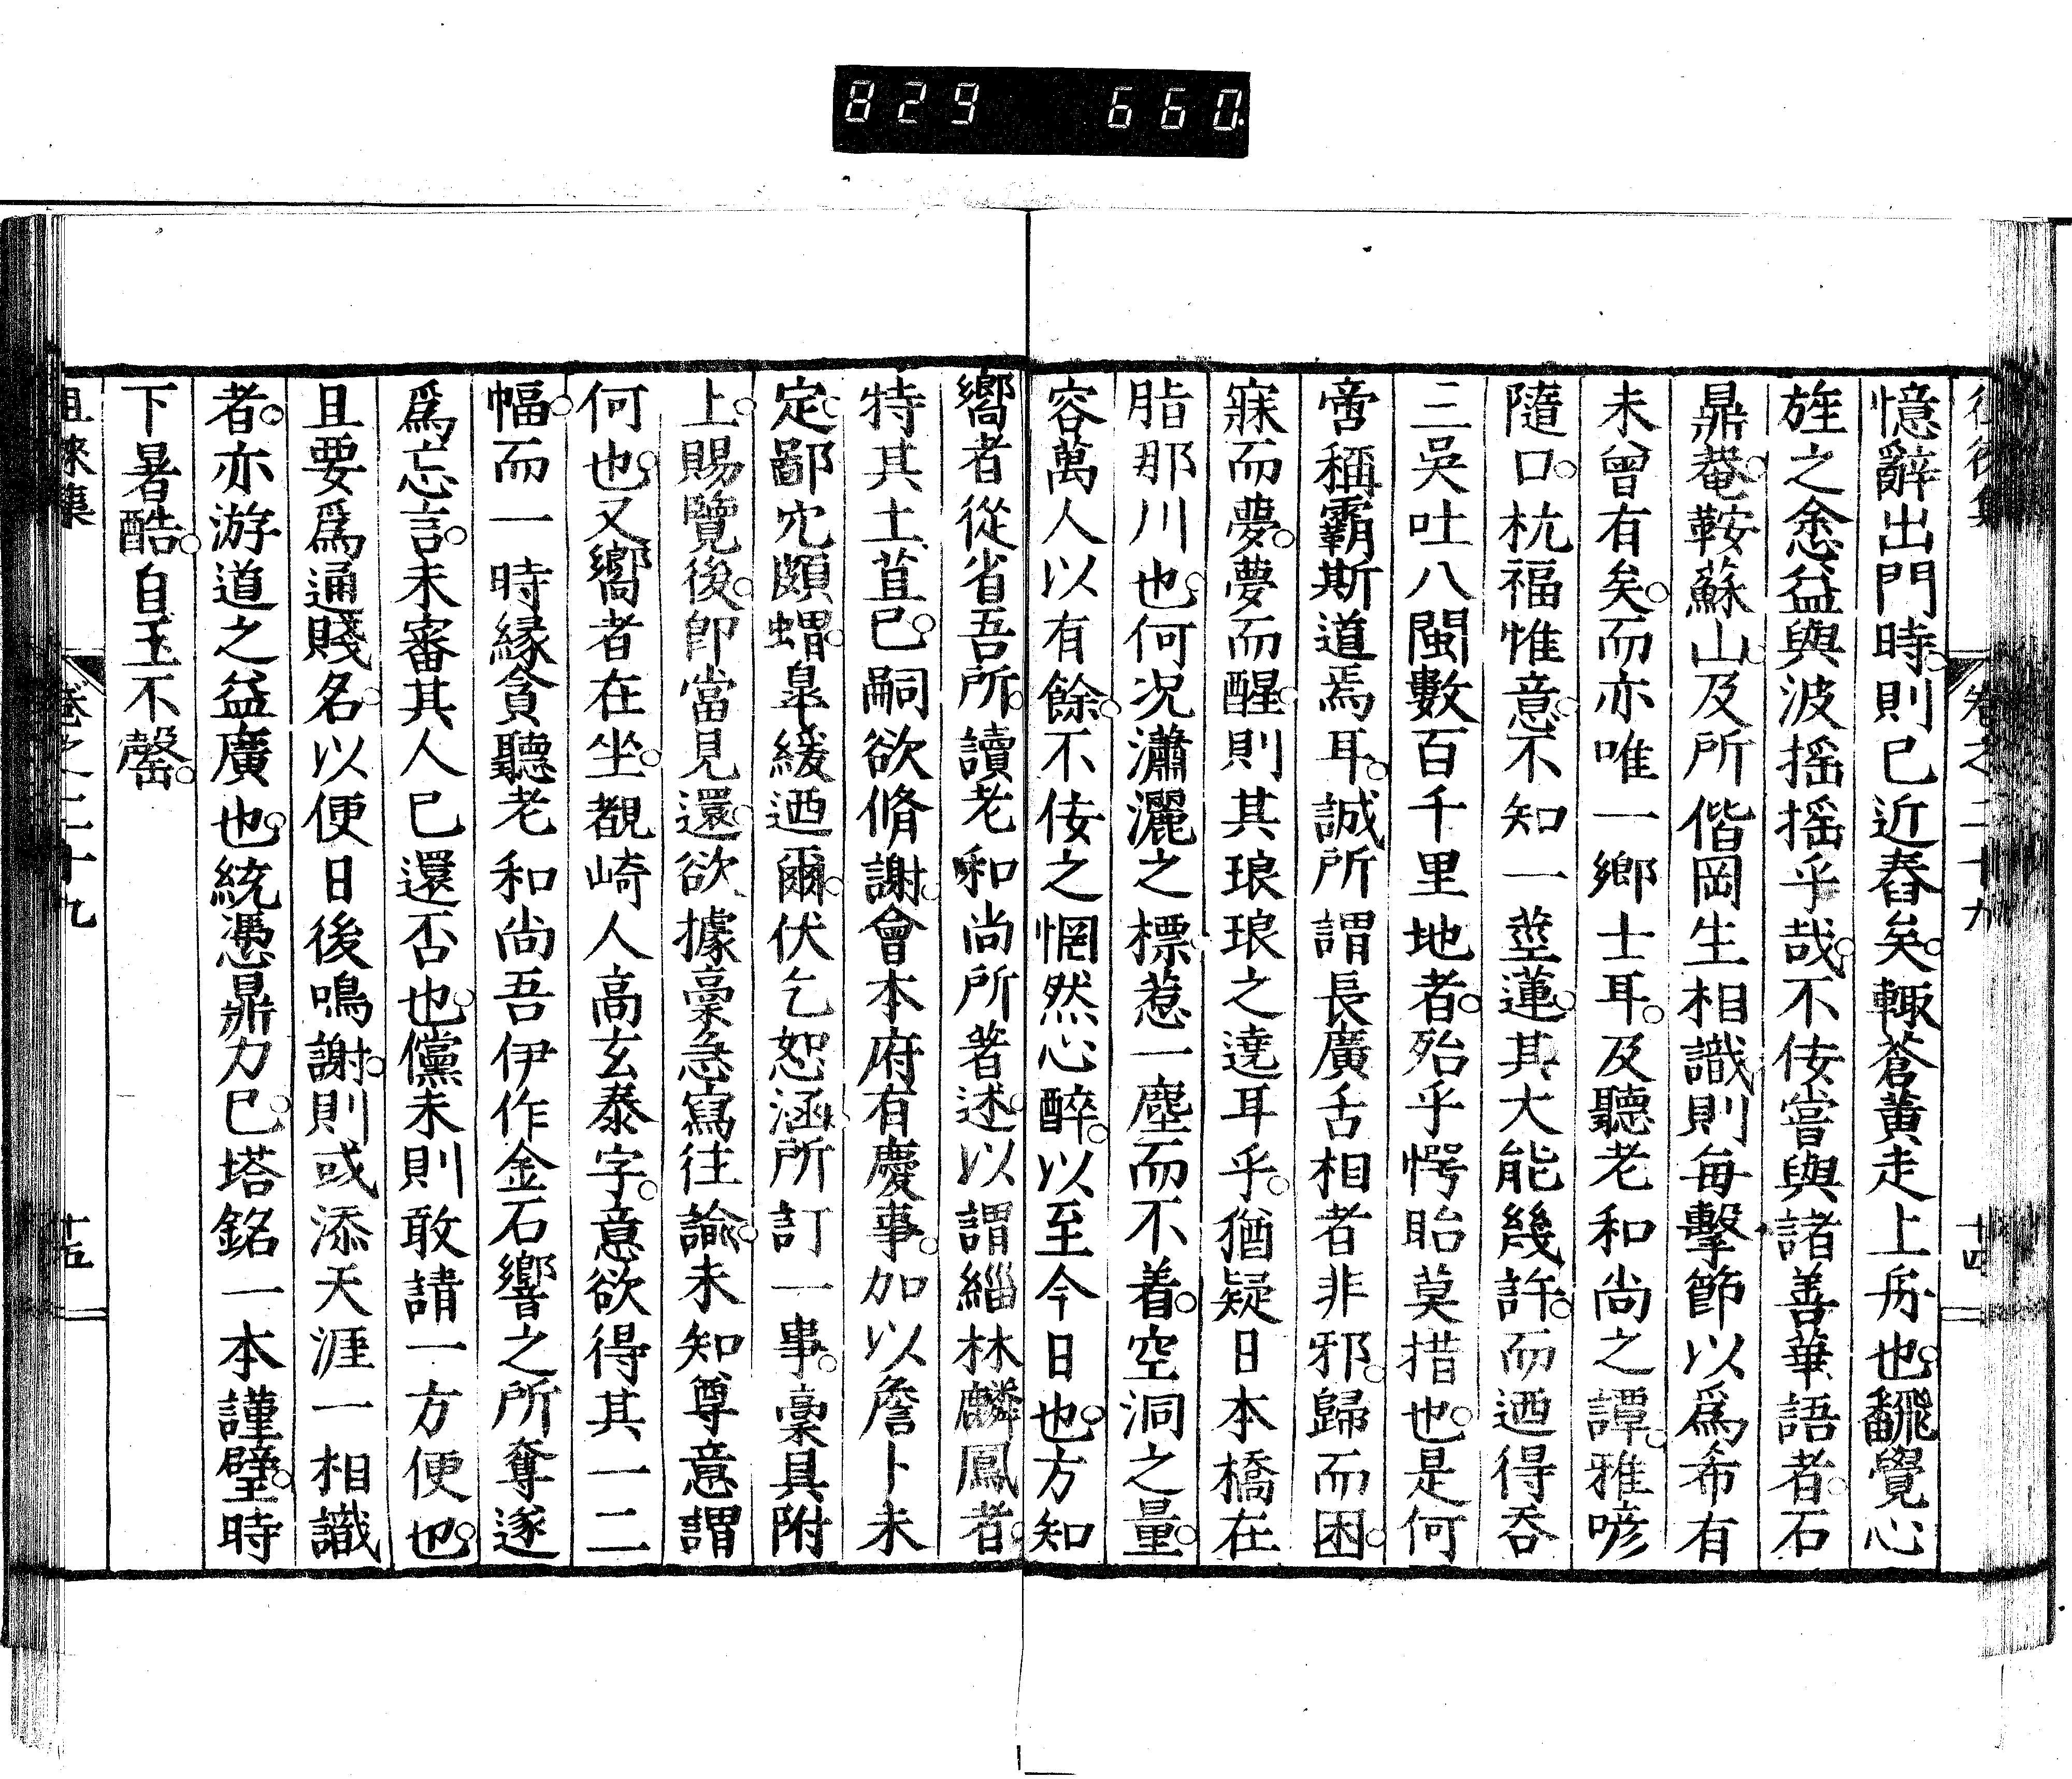 829 660
卷之二十九 十四
憶辭出門時則已近舂矣輙蒼黃走上㪽也飜覺心
旌之愈益與波搖搖乎哉不佞嘗與諸善華語者石
鼎菴鞍蘇山及所偕岡生相識則每擊節以爲希有
未曾有矣而亦唯一鄉士耳及聽老和尚之譚雅喭
隨口杭福惟意不知一莖蓮其大能幾許而迺得吞
三吳吐八閩數百千里地者殆乎愕眙莫措也是何
啻稱霸斯道焉耳誠所謂長廣舌相者非邪歸而困
寐而夢夢而醒則其琅琅之遶耳乎猶疑日本橋在
脂那川也何况瀟灑之標惹一塵而不着空洞之量
容萬人以有餘不佞之惘然心醉以至今日也方知
嚮者從省吾所讀老和尚所著述以謂緇林麟鳳者
特其土苴已嗣欲脩謝會本府有慶事加以詹卜未
定鄙冗頗蝟辠緩迺爾伏乞恕涵所訂一事藁具附
上賜覽後卽當見還欲據藁急寫往諭未知尊意謂
何也又嚮者在坐覩崎人高玄泰字意欲得其一二
幅而一時緣貪聽老和尚吾伊作金石響之所奪遂
爲忘言未審其人已還否也儻未則敢請一方便也
且要爲通賤名以便日後鳴謝則或添天涯一相識
者亦游道之益廣也統憑鼎力已塔銘一本謹璧時
下暑酷自玉不罄
徂徠集 卷之二十九 十五